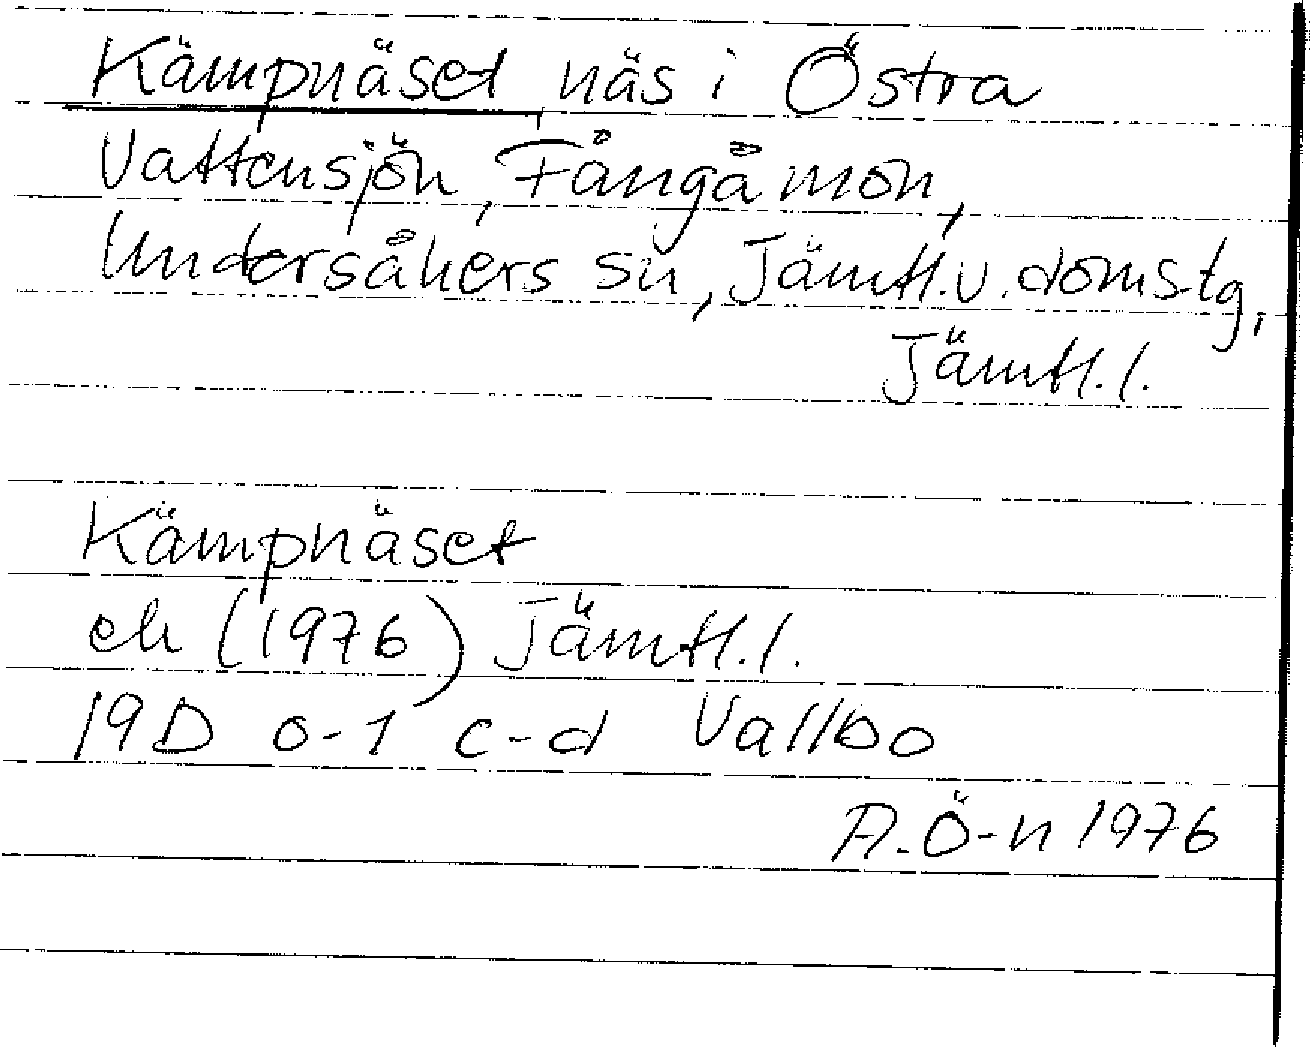 Kämpnäset näs i Östra
Vattensjön, Fångåmon,
Undersåkers sn, Jämtl.v. domstg,
Jämtl.l.
Kämpnäset
ek (1976) Jämtl.l.
19D 0-1 c-d Vallbo
A.Ö-n 1976